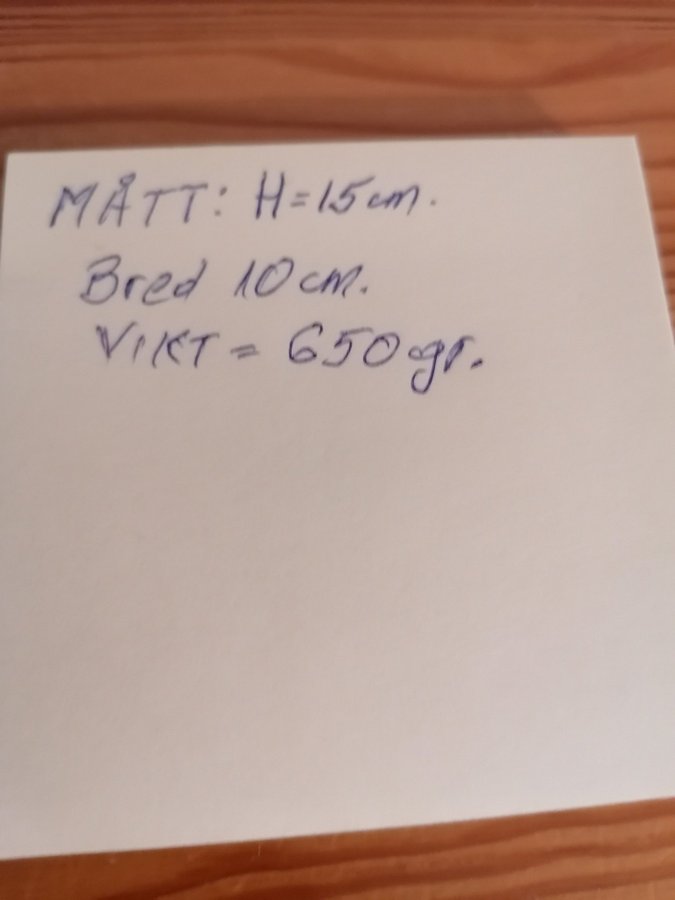 MÅTT: H=15cm.
Bred 10cm.
VIKT = 650gr.